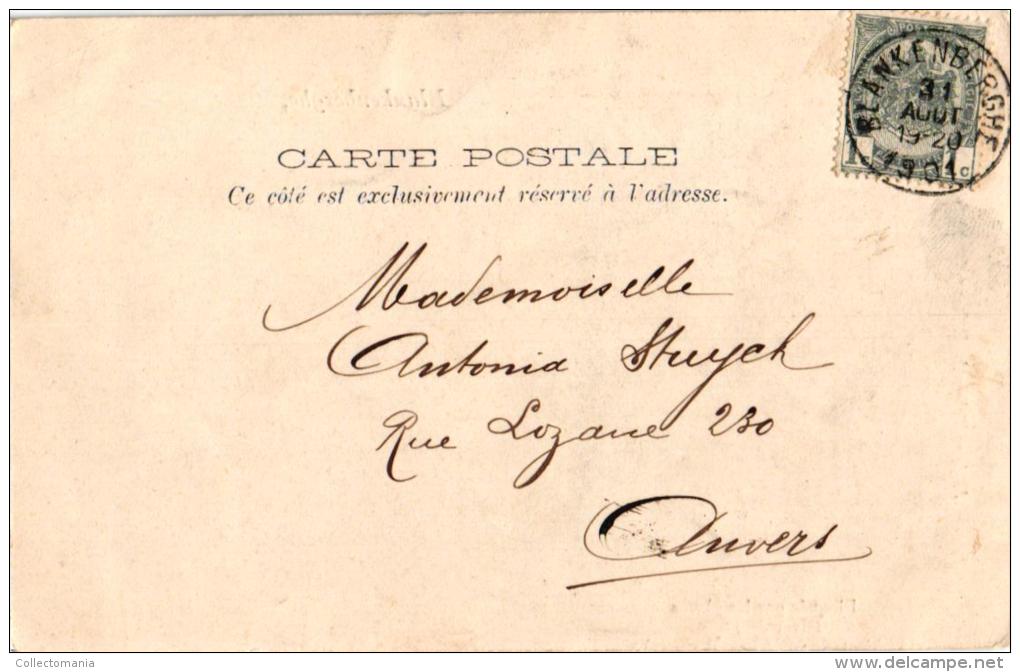 BLANKENBERGHE
31
AOUT
19-20
1901
CARTE POSTALE
Ce côté est exclusivement réservé à l'adresse.
Mademoiselle
Antonia Stuyck
Rue Lozane 230
Anvers
Collectomania
www.delcampe.net